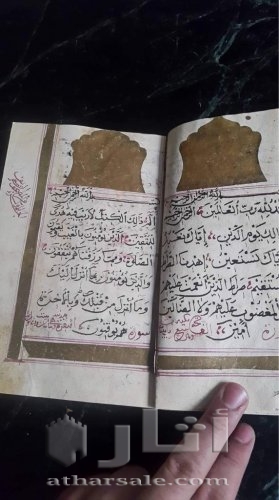 بسم الله الرحمن الرحيم
لله رب العالمين
لك يوم الدين اياك نعبد
ك نستعين اهدنا الصرا
ستقيم صراط الذين انعمت عليهم
المغضوب عليهم ولا الضالين
امين
بسم الله الرحمن الرحيم
الم ذلك الكتاب لا ريب فيه هدى
للمتقين الذين يؤمنون بالغيب ويقيمون
الصلوة ومما رزقناهم ينفقون
والذين يؤمنون بما انزل اليك
وما انزل من قبلك وبالاخرة
هم يوقنون
أثار
atharsale.com